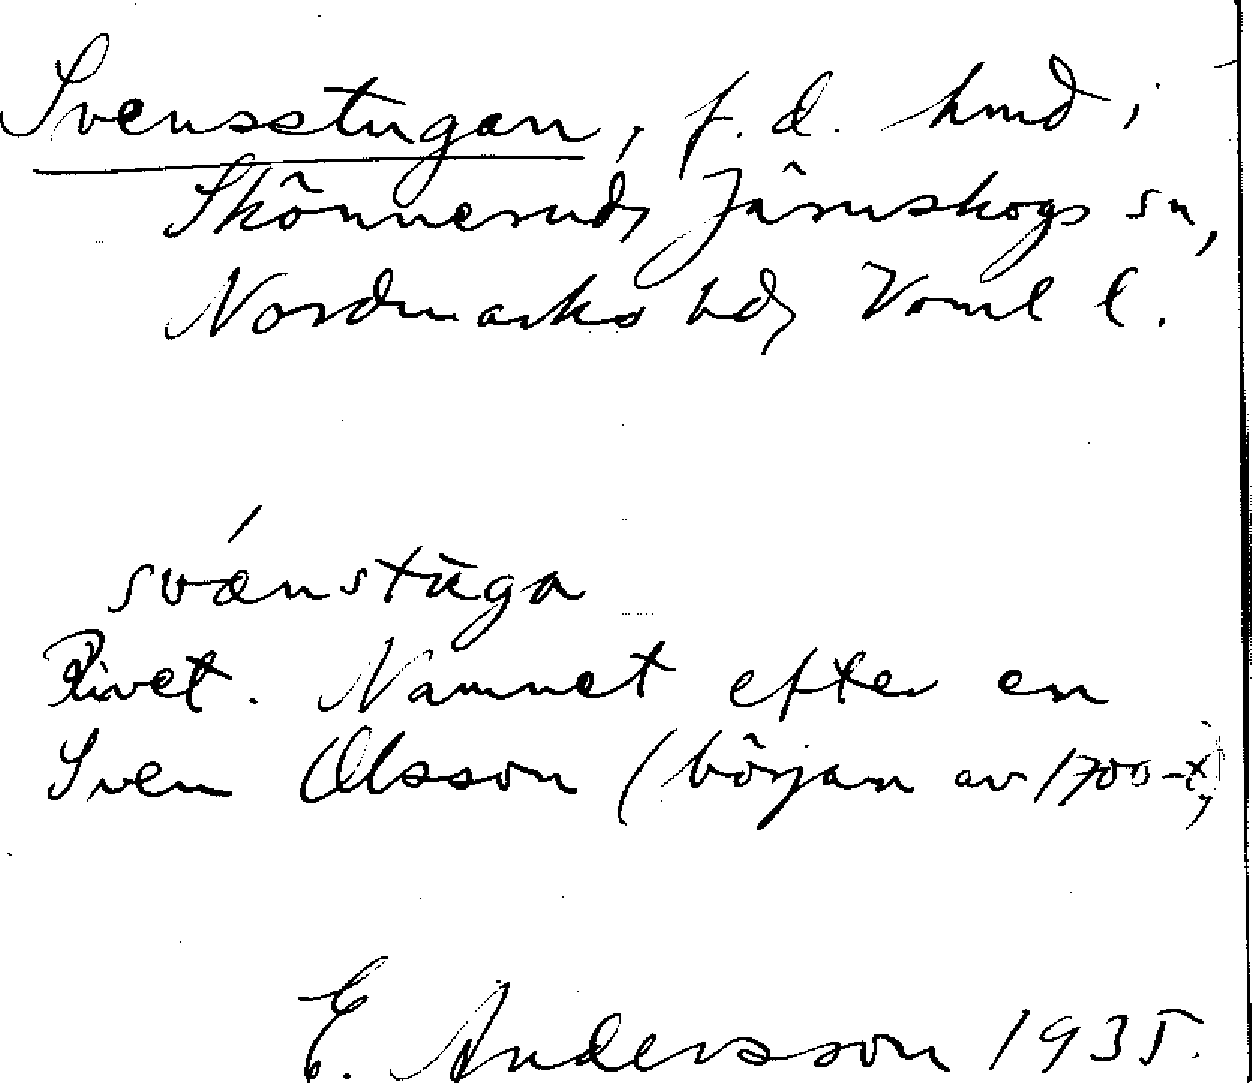 Svensstugan, f.d. hmd i
Skönnerud, Järnskogs sn,
Nordmarks hd, Värml l.
svǽnstùga
Rivet. Namnet efter en
Sven Olsson (början av 1700-t)
E. Andersson 1935.